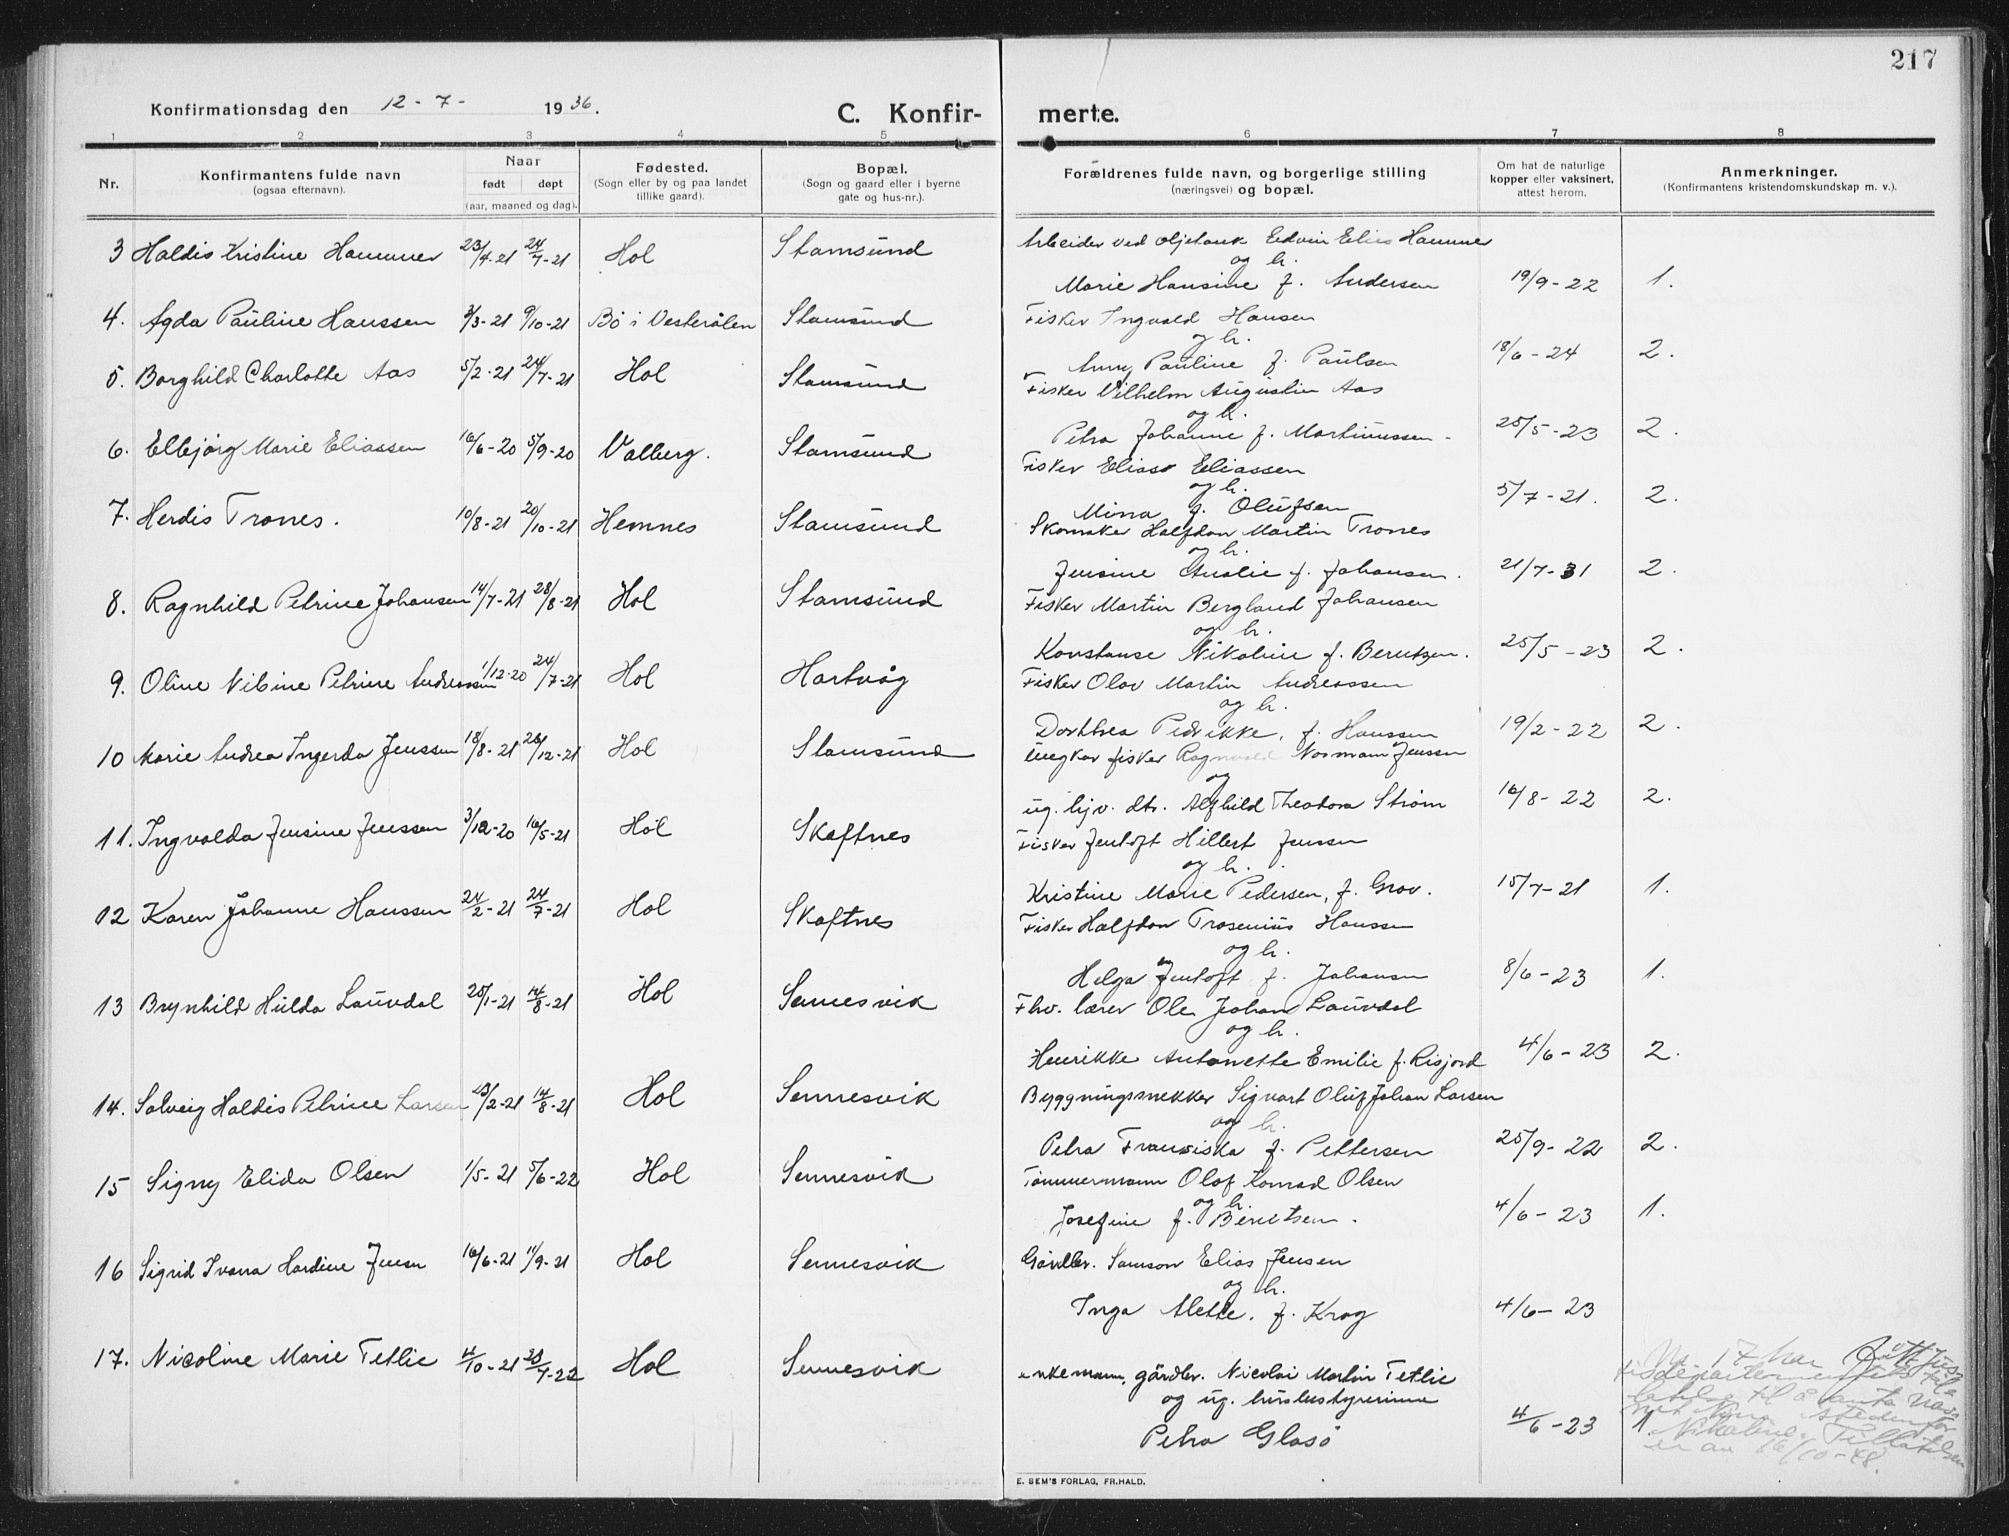 217
Konfirmationsdag den 12-7- 1936.
C. Konfir-
merte.
1 2 3 4 5 6 7 8
Nr.
Konfirmantens fulde navn
(ogsaa efternavn).
Naar
født døpt
(aar, maaned og dag).
Fødested.
(Sogn eller by og paa landet
tillike gaard).
Bopæl.
(Sogn og gaard eller i byerne
gate og hus-nr.).
Forældrenes fulde navn, og borgerlige stilling
(næringsvei) og bopæl.
Om hat de naturlige
kopper eller vaksinert,
attest herom.
Anmerkninger.
(Konfirmantens kristendomskundskap m. v.).
3 Haldis Kristine Hammer 23/4-21 24/7-21 Hol Stamsund
Arbeider ved oljetank Edvin Elias Hammer
og h.
Marie Hansine f. Andersen 19/9-22 1.
4. Agda Pauline Hanssen 3/3-21 9/10-21 Bö i Vesterålen Stamsund
Fisker Ingvald Hansen
og h.
Anny Pauline f. Paulsen 18/6-24 2.
5. Borghild Charlotte Aas 5/2-21 24/7-21 Hol Stamsund
Fisker Vilhelm Augustin Aas
og h.
Petra Johanne f. Martinussen 25/5-23 2.
6. Ellbjörg Marie Eliassen 16/6-20 5/9-20 Valberg. Stamsund
Fisker Elias Eliassen
og h.
Minna f. Olufsen 5/7-21. 2.
7. Herdis Trones. 10/8-21 20/10-21 Hemnes Stamsund
Skomaker Halfdan Martin Trones
og h.
Jensine Analie f. Johansen. 21/7-31 2.
8. Ragnhild Petrine Johansen 14/7-21 28/8-21 Hol Stamsund
Fisker Martin Bergland Johansen
og h.
Konstanse Nikoline f. Berntzen. 25/5-23 2.
9. Oline Nibine Petrine Andreassen 1/12-20 24/7-21 Hol Hartvåg
Fisker Olav Martin Andreassen
og h.
Dorthea Pedrikke, f. Hanssen 19/2-22 2.
10 Marie Andrea Ingerda Jenssen 18/8-21 26/12-21 Hol Stamsund
Ungkar fisker Ragnvald Normann Jenssen
og
ug. hjv. dtr. Alfhild Theodora Strøm 16/8-22 2.
11. Ingvalda Jensine Jenssen 3/12-20 16/5-21 Hol Skaftnes
Fisker Jentoft Hillert Jenssen
og h.
Kristine Marie Pedersen, f. Grov. 15/7-21 1.
12 Karen Johanne Hanssen 24/2-21 24/7-21 Hol Skaftnes
Fisker Halfdan Trosenius Hanssen
og h.
Helga Jentoft f. Johansen 8/6-23 1.
13 Brynhild Hulda Lauvdal 25/1-21 14/8-21 Hol Sennesvik
Fhv. lærer Ole Johan Lauvdal
og h.
Henrikke Antonette Emilie f. Risjord 4/6-23 2.
14. Solveig Haldis Petrine Larsen 13/2-21 14/8-21 Hol Sennesvik
Byggningssnekker Sigvart Oluf Johan Larsen
og h.
Petra Fransiska f. Pettersen 25/9-22 2.
15 Signy Elida Olsen 1/5-21 5/6-22 Hol Sennesvik
Tömmermann Olaf Konrad Olsen
og h.
Josefine f. Berntsen. 4/6-23 1.
16 Sigrid Ivana Hardine Jensen 16/6-21 11/9-21 Hol Sennesvik
Gårdbr. Samson Elias Jensen
og h.
Inga Alette, f. Krog 4/6-23
17. Nicoline Marie Tetlie 4/10-21 23/4-22 Hol Sennesvik
enkemann, gårdbr. Nicolai Martin Tetlie
og ug. husbestyrerinne
Petra Glasö 4/6-23 1.
Nr. 17 har fått jus-
tisdepartementets til-
latelse til å anta nav-
net Nina istedenfor
Nikoline. Tillatelsen
er av 16/10-48.
E. SEM'S FORLAG, FR.HALD.